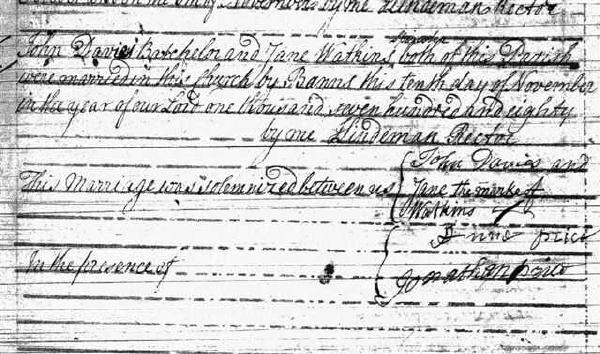 day of November by me Lindeman Rector
Spinster
John Davies Batchelor and Jane Watkins both of this Parish
were married in this Church by Banns this tenth day of November
in the year of our Lord one thousand seven hundred and eighty
by me Lindeman Rector
John Davies and
This Marriage was solemnized between us Jane the mark of
Watkins
Anne price
In the presence of
Jonathan price